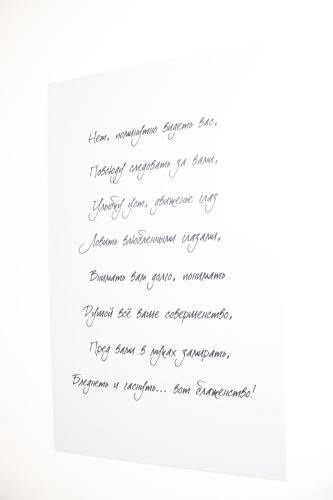 Нет, поминутно видеть вас,
Повсюду следовать за вами,
Улыбку уст, движенье глаз
Ловить влюбленными глазами,
Внимать вам долго, понимать
Душой всё ваше совершенство,
Пред вами в муках замирать,
Бледнеть и гаснуть... вот блаженство!